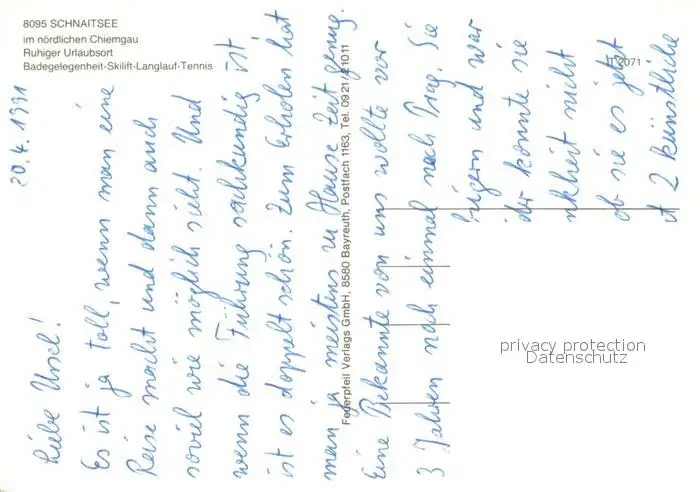 8095 SCHNAITSEE
im nördlichen Chiemgau
Ruhiger Urlaubsort
Badegelegenheit-Skilift-Langlauf-Tennis
20.4.1991
Liebe Ursel!
Es ist ja toll, wenn man eine
Reise macht und dann auch
soviel wie möglich sieht. Und
wenn die Führung sachkundig ist,
ist es doppelt schön. Zum Erholen hat
man ja meistens zu Hause Zeit genug.
Eine Bekannte von uns wollte vor
3 Jahren noch einmal nach Prag. Sie
und war
konnte sie
nicht
ob sie es jetzt
2 künstliche
Federpfeil Verlags GmbH, 8580 Bayreuth, Postfach 1163, Tel. 0921/21011
2071
privacy protection
Datenschutz